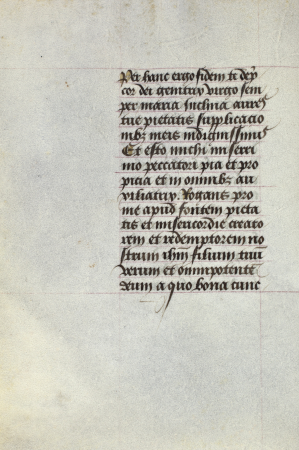 Per hanc ergo fidem te dep̄
cor dei genitrix virgo sem
per maria Inclina aurē
tue pietatis supplicatio
nibꝫ meis indignissimis
Et esto michi miserri
mo peccatori pia et pro
picia et in omnibꝫ au
xiliatrix. Rogans pro
me apud fontem pieta
tis et misericordie creato
rem et redemptorem no
strum ihm̄ filium tuū
verum et omnipotentē
deum a quo bona cunc